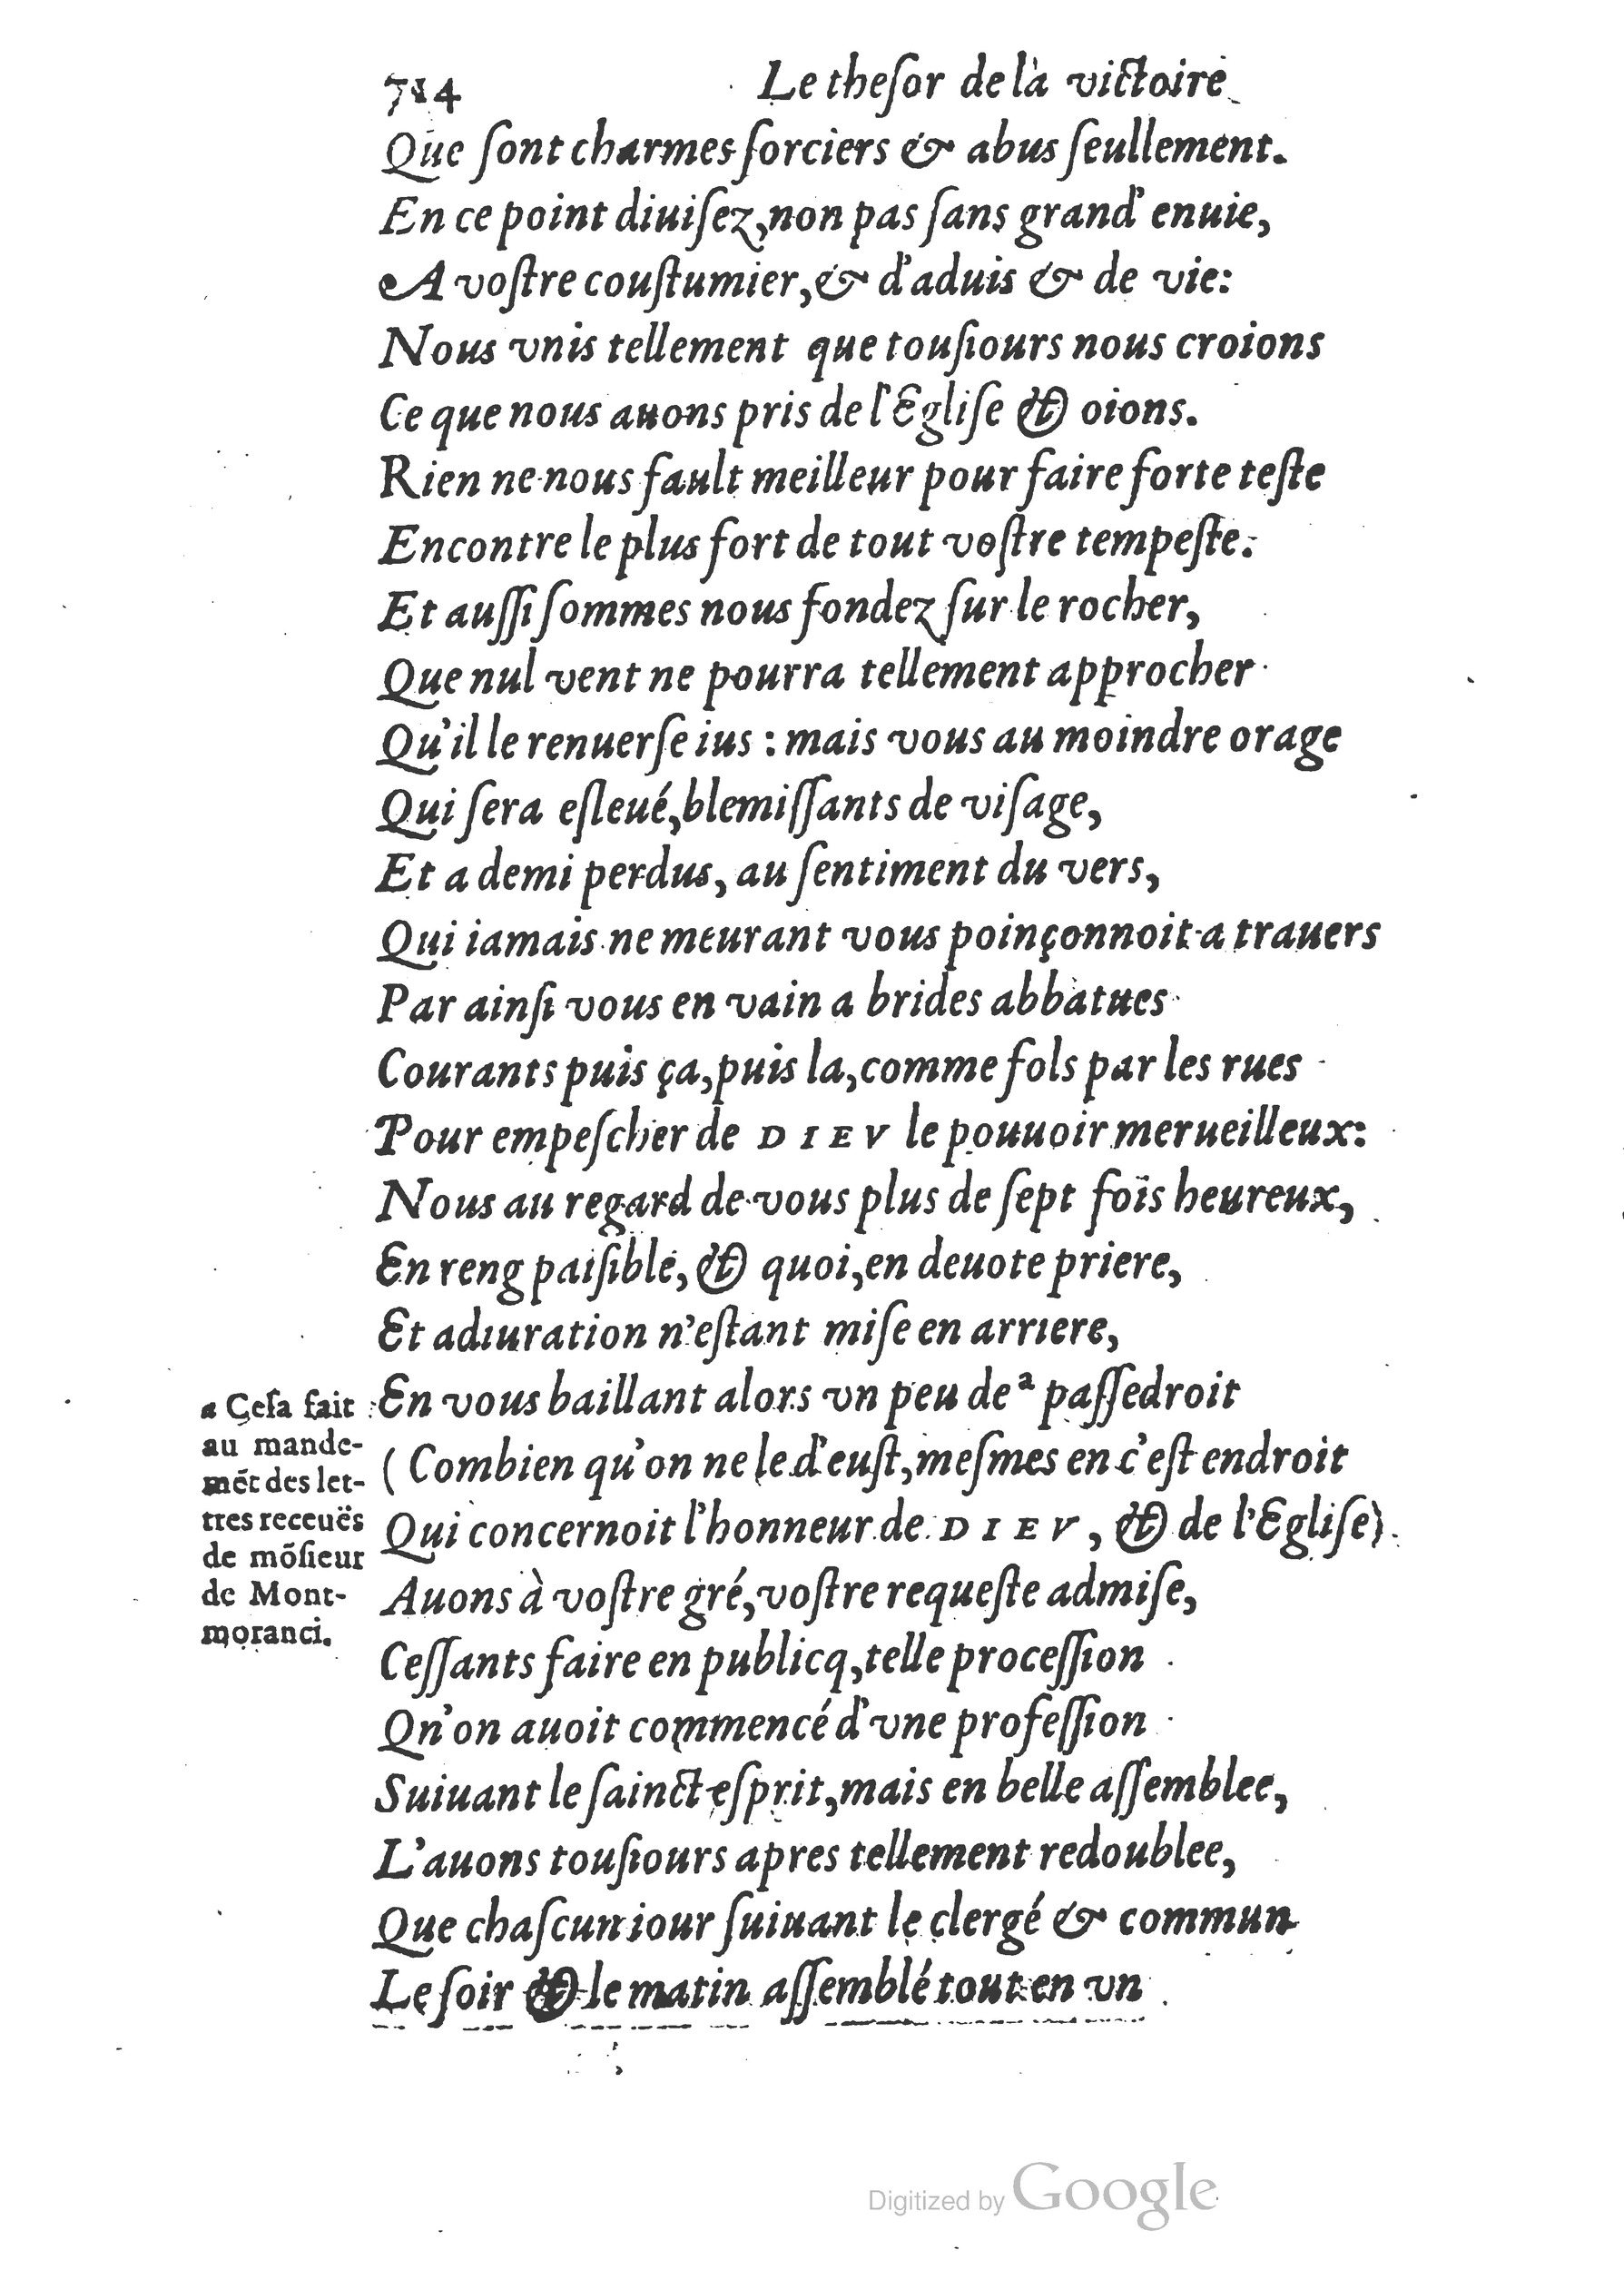 714 Le theſor de la victoire
Que ſont charmes ſorciers & abus ſeullement.
En ce point diuiſez, non pas ſans grand' enuie,
A voſtre couſtumier, & d'aduis & de vie:
Nous vnis tellement que touſiours nous croions
Ce que nous auons pris de l'Egliſe & oions.
Rien ne nous fault meilleur pour faire forte teſte
Encontre le plus fort de tout voſtre tempeſte.
Et auſſi ſommes nous fondez ſur le rocher,
Que nul vent ne pourra tellement approcher
Qu'il le renuerſe ius : mais vous au moindre orage
Qui ſera eſleué, blemiſſants de viſage,
Et a demi perdus, au ſentiment du vers,
Qui iamais ne meurant vous poinçonnoit a trauers
Par ainſi vous en vain a brides abbatues
Courants puis ça, puis la, comme fols par les rues
Pour empeſcher de DIEV le pouuoir merueilleux:
Nous au regard de vous plus de ſept fois heureux,
En reng paiſible, & quoi, en deuote priere,
Et adiuration n'eſtant miſe en arriere,
En vous baillant alors vn peu de a paſſedroit
(Combien qu'on ne le d'euſt, meſmes en c'eſt endroit
Qui concernoit l'honneur de DIEV, & de l'Egliſe)
Auons à voſtre gré, voſtre requeſte admiſe,
Ceſſants faire en publicq, telle proceſſion
Qn'on auoit commencé d'vne profeſſion
Suiuant le ſainct eſprit, mais en belle aſſemblee,
L'auons touſiours apres tellement redoublee,
Que chaſcun iour ſuiuant le clergé & commun
Le ſoir & le matin aſſemblé tout en vn
a Ceſa fait
au mande-
mẽt des let-
tres receuës
de mõſieur
de Mont-
moranci.
Digitized by Google